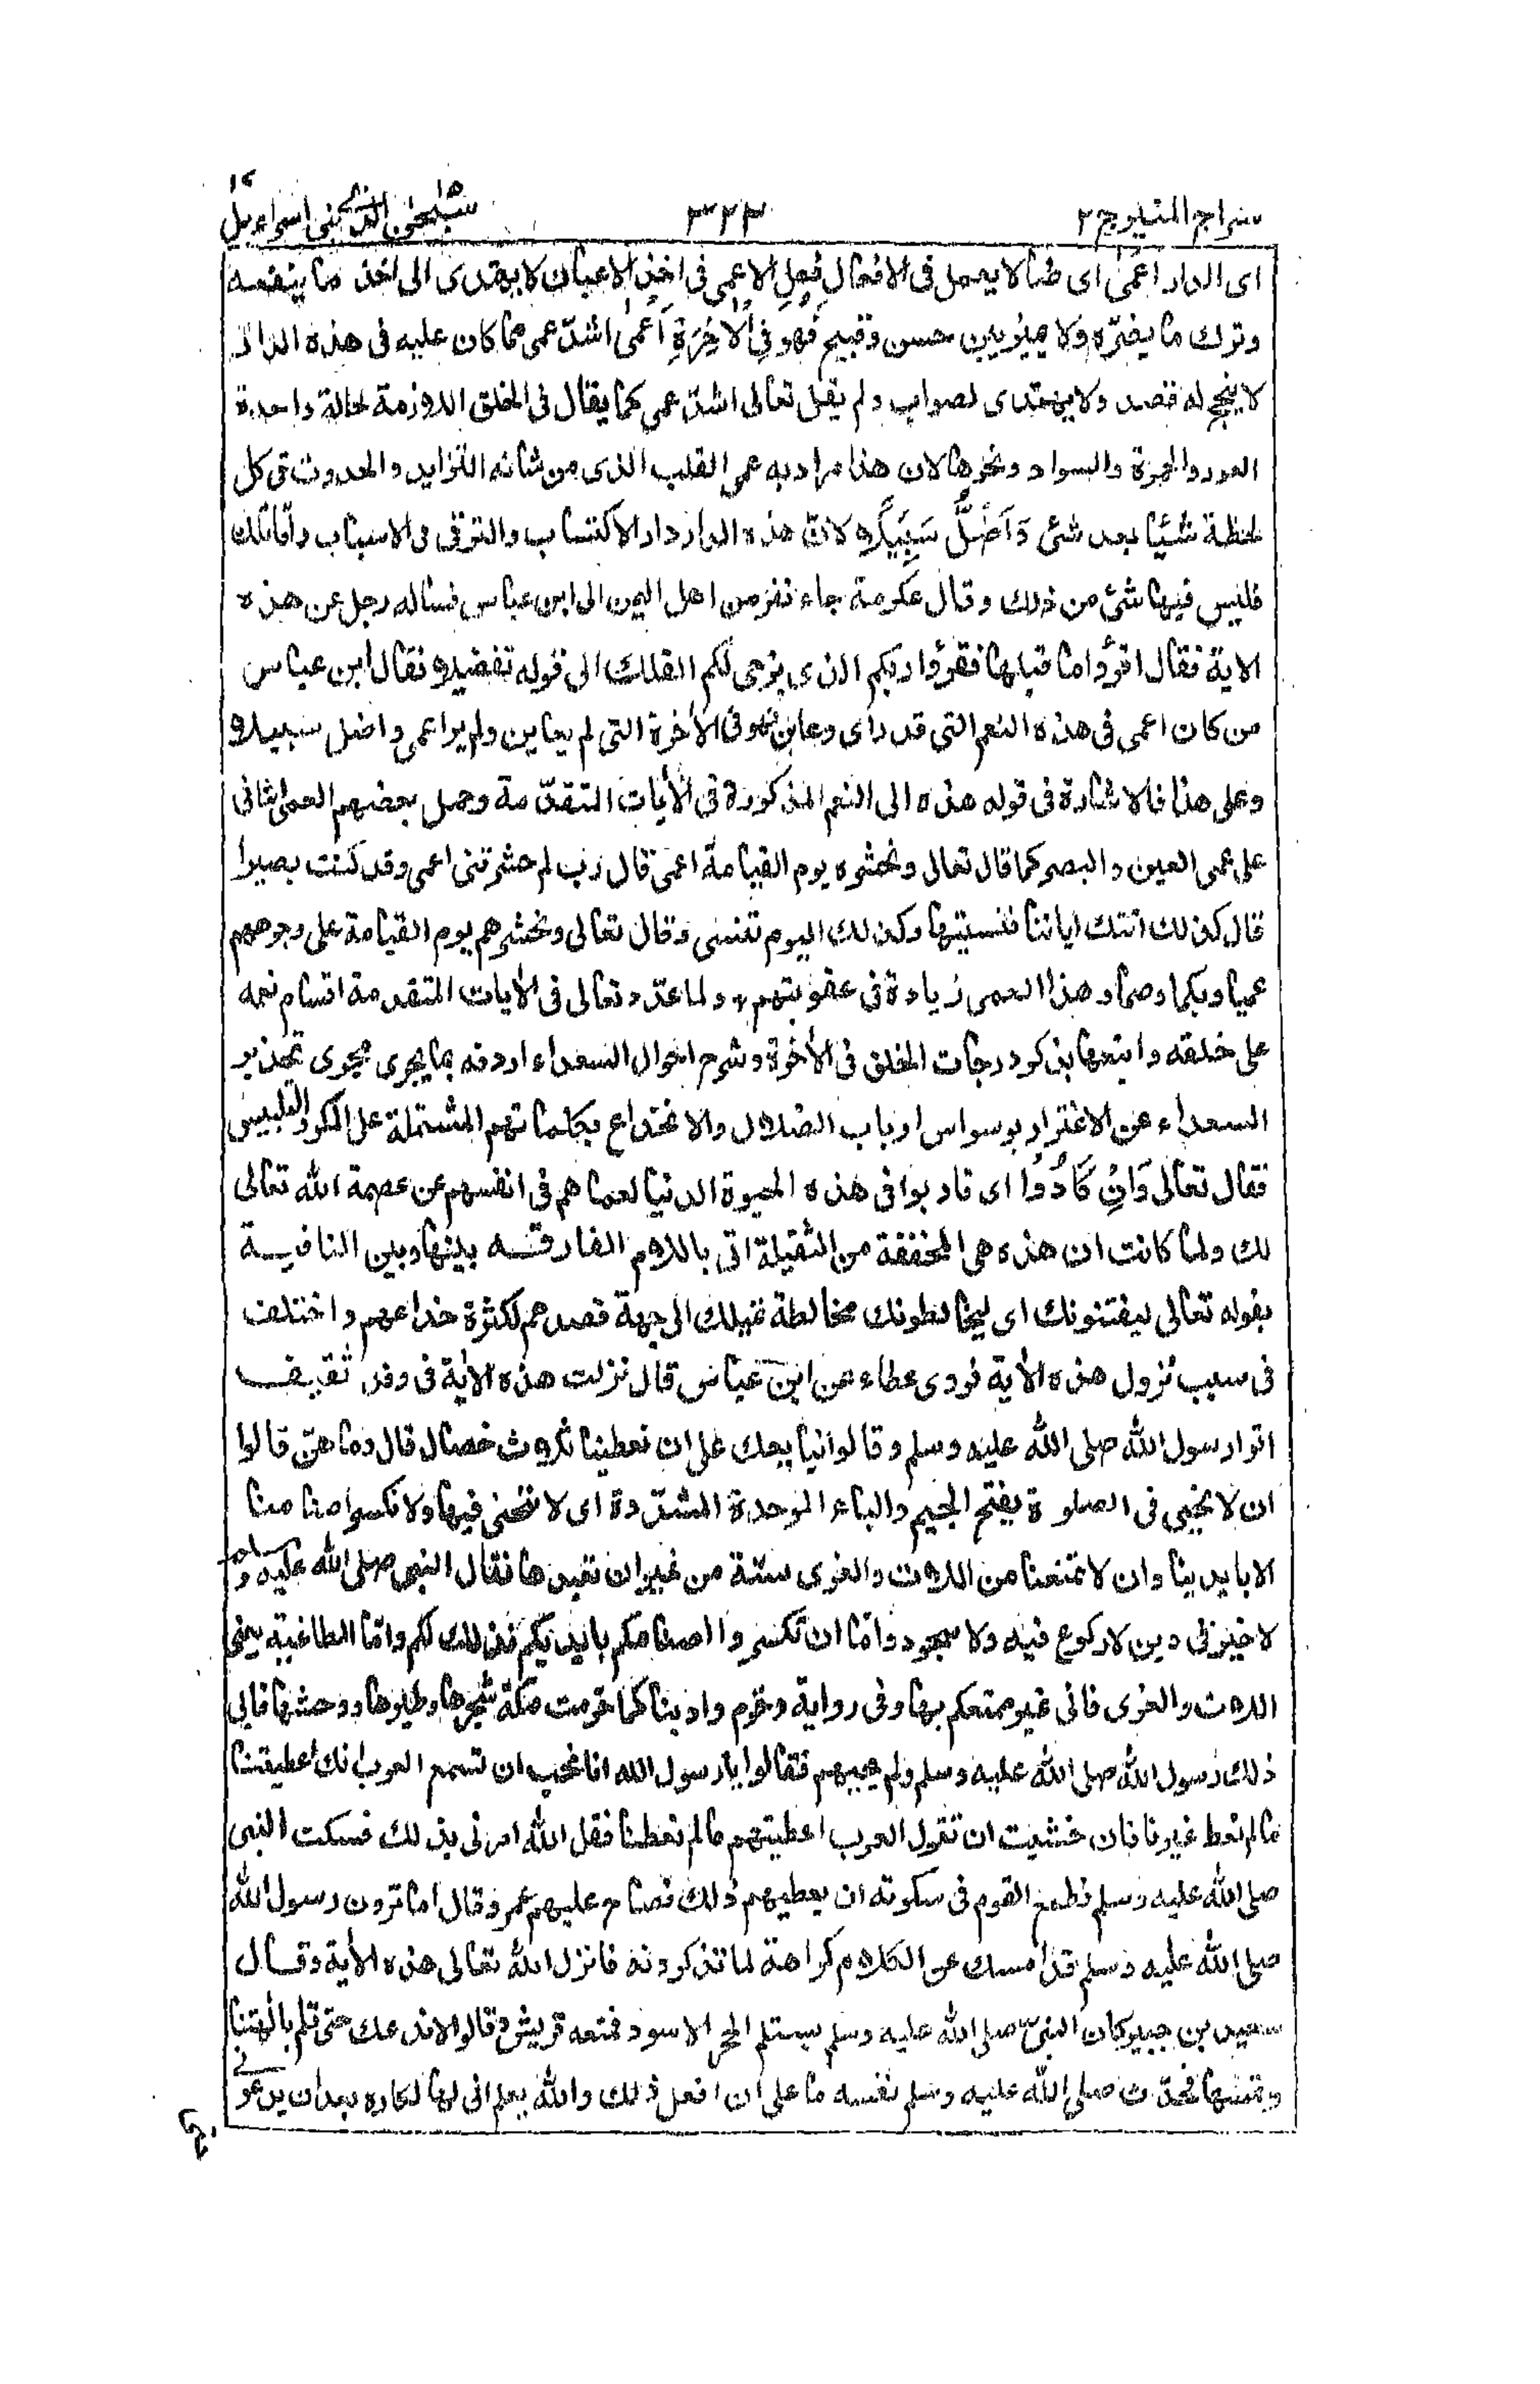 سراج المنير ج ٢
٣٢٣
سبحن الذى ١٥ بنى اسراءيل ١٧
اى الدار اعمى اى ضالا يعمل فى الافعال فعل الاعمى فى اخذ الاعيان لا يهتدى الى اخذ ما ينفعه
وترك ما يضره ولا يميز بين حسن وقبيح فَهُوَ فِى الْاٰخِرَةِ اَعْمٰى اشدّ عمى مما كان عليه فى هذه الدار
لا ينجح له قصد ولا يهتدى لصواب ولم يقل تعالى اشدّ عمى كما يقال فى الخلق اللازمة لحالة واحدة
العور والحمرة والسواد ونحوها لان هذا مراد به عمى القلب الذى من شانه التزايد والحدوث فى كل
لحظة شيئا بعد شئ وَاَضَلُّ سَبِيْلًا لانّ هذه الدار دار الاكتساب والترقى فى الاسباب وامّا تلك
فليس فيها شئ من ذلك وقال عكرمة جاء نفر من اهل اليمن الى ابن عباس فساله رجل عن هذه
الاية فقال اقرؤا ما قبلها فقرؤا ربكم الذى يزجى لكم الفلك الى قوله تفضيلا فقال ابن عباس
من كان اعمى فى هذه النعم التى قد راى وعاين فهو فى الاٰخرة التى لم يعاين ولم ير اعمى واضل سبيلا
وعلى هذا فالاشارة فى قوله هذه الى النعم المذكورة فى الاٰيات المتقدّمة وحمل بعضهم العمى الثانى
على عمى العين والبصر كما قال تعالى ونحشره يوم القيامة اعمى قال رب لم حشرتنى اعمى وقد كنت بصيرا
قال كذلك اتتك اياتنا فنسيتها وكذلك اليوم تنسى وقال تعالى ونحشرهم يوم القيامة على وجوههم
عميا وبكما وصما وهذا العمى زيادة فى عقوبتهم ولما عدّد تعالى فى الاٰيات المتقدمة اقسام نعمه
على خلقه واتبعها بذكر درجات الخلق فى الاٰخرة وشرح احوال السعداء اردفه بما يجرى مجرى تحذير
السعداء عن الاغترار بوسواس ارباب الضلال والانخداع بكلماتهم المشتملة على المكر والتلبيس
فقال تعالى وَاِنْ كَادُوْا اى قاربوا فى هذه الحيوة الدنيا لعماهم فى انفسهم عن عصمة الله تعالى
لك ولما كانت ان هذه هى المخففة من الثقيلة اتى باللام الفارقة بينها وبين النافية
بقوله تعالى ليفتنونك اى ليخالطونك مخالطة تميلك الى جهة قصدهم لكثرة خداعهم واختلف
فى سبب نزول هذه الاٰية فروى عطاء عن ابن عباس قال نزلت هذه الاٰية فى وفد ثقيف
اتوا رسول الله صلى الله عليه وسلم وقالوا نبايعك على ان تعطينا ثلاث خصال قال وما هنّ قالوا
ان لا نجبى فى الصلوة بفتح الجيم والباء الموحدة المشدّدة اى لا ننحنى فيها ولا نكسر اصنامنا
الا بايدينا وان لا تمنعنا من اللات والعزى سنة من غير ان نعبدها فقال النبى صلى الله عليه وسلم
لا خير فى دين لا ركوع فيه ولا سجود وامّا ان تكسروا اصنامكم بايديكم فذلك لكم وامّا الطاغية يعنى
اللات والعزى فانى غير ممتعكم بها وفى رواية وتحرم وادينا كما حرمت مكة شجرها وطيرها ووحشها فابى
ذلك رسول الله صلى الله عليه وسلم ولم يجبهم فقالوا يا رسول الله انا نحب ان تسمع العرب انك اعطيتنا
ما لم تعط غيرنا فان خشيت ان تقول العرب اعطيتهم ما لم تعطنا فقل الله امرنى بذلك فسكت النبى
صلى الله عليه وسلم فطمع القوم فى سكوته ان يعطيهم ذلك فصاح عليهم عمر وقال اما ترون رسول الله
صلى الله عليه وسلم قد امسك عن الكلام كراهة لما تذكرونه فانزل الله تعالى هذه الاٰية وقال
سعيد بن جبير كان النبىّ صلى الله عليه وسلم يستلم الحجر الاسود فمنعه قريش وقالوا لا ندعك حتى تلم باٰلهتنا
وتمسها فحدّث صلى الله عليه وسلم نفسه ما على ان افعل ذلك والله يعلم انى لها لكاره بعد ان يدعونى